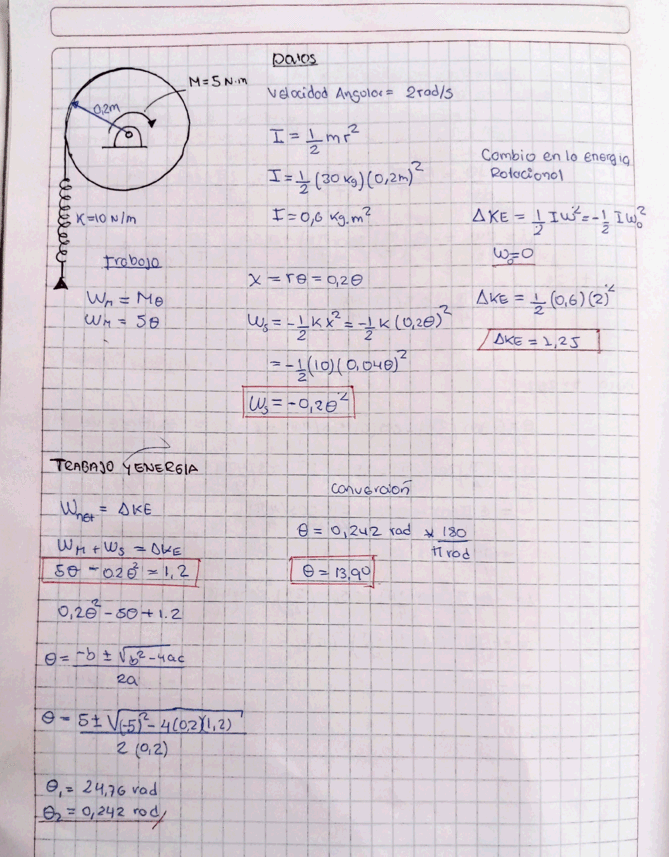 Datos
M=5 N·m
0,2m
K=10 N/m
Velocidad Angular = 2 rad/s
I = 1/2 mr²
I = 1/2 (30 kg)(0,2m)²
I = 0,6 kg.m²
Cambio en la energia
Rotacional
ΔKE = 1/2 Iω² = -1/2 Iω₀²
ω₀=0
ΔKE = 1/2 (0,6)(2)²
ΔKE = 1,2J
trabajo
W_M = Mθ
W_M = 5θ
X = rθ = 0,2θ
W_s = -1/2 Kx² = -1/2 K(0,2θ)²
= -1/2 (10)(0,04θ)²
W_s = -0,2θ²
TRABAJO Y ENERGIA
W_net = ΔKE
W_M + W_s = ΔKE
5θ - 0.2θ² = 1,2
0,2θ² - 5θ + 1.2
θ = (-b ± √(b² - 4ac)) / 2a
θ = (5 ± √((-5)² - 4(0.2)(1,2))) / 2 (0,2)
θ₁ = 24,76 rad
θ₂ = 0,242 rad
Conversión
θ = 0,242 rad * 180 / π rad
θ = 13,9°